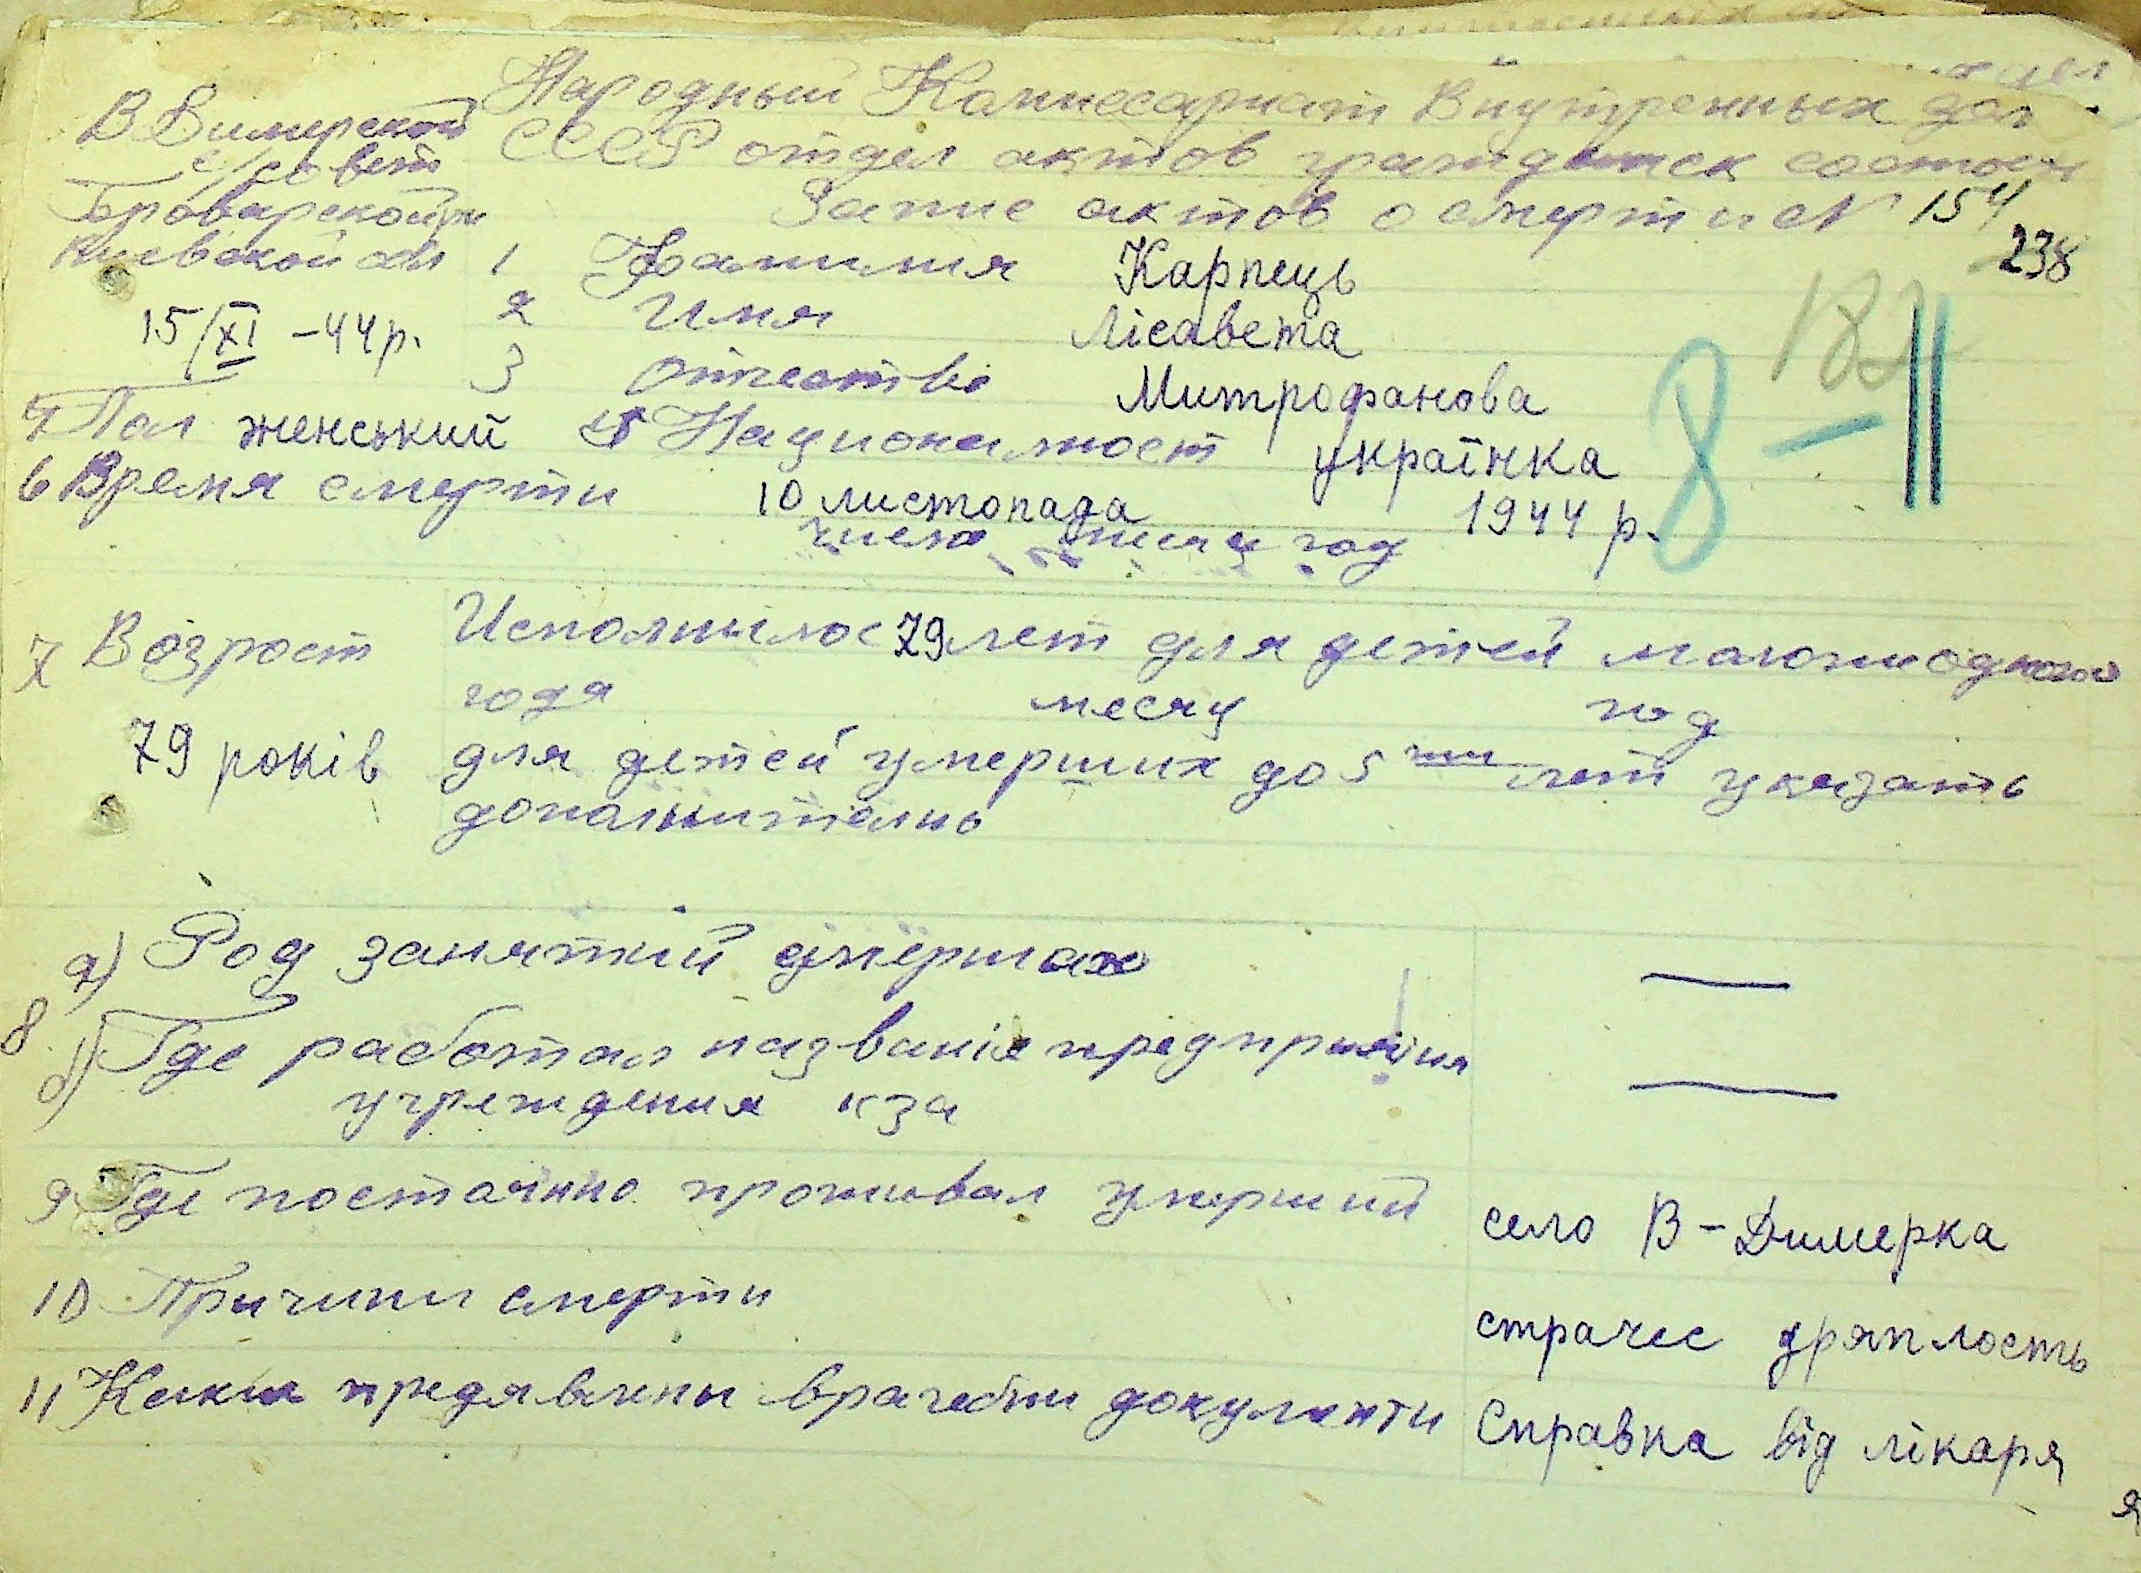 Народный Коммесариат Внутренных дел
СССР отдел актов граждынск состоян
Запис актов о смерти N 154
238
В Димерской
с/совет
Броварской рн
Киевской обл
15/XI -44р.
1 Фамилия Карпець
2 Имя Лісавета
3 Отчество Митрофанова
182
8 - 11
4 Пол женський 5 Националност українка
6 Время смерти 10 листопада 1944 р.
число месяц год
7 Возрост Исполнилос 79 лет для детей
года месяц год
79 років для детей умерших до 5 ти лет указать
дополнително
8 а) Род занятий умершаго —
б) Где работал названія предприятия —
учреждения кза
9 Где постаянно проживал умерший село В-Димерка
10 Причини смерти страчес дряплость
11 Какия предявлены врачебни документи Справка від лікаря